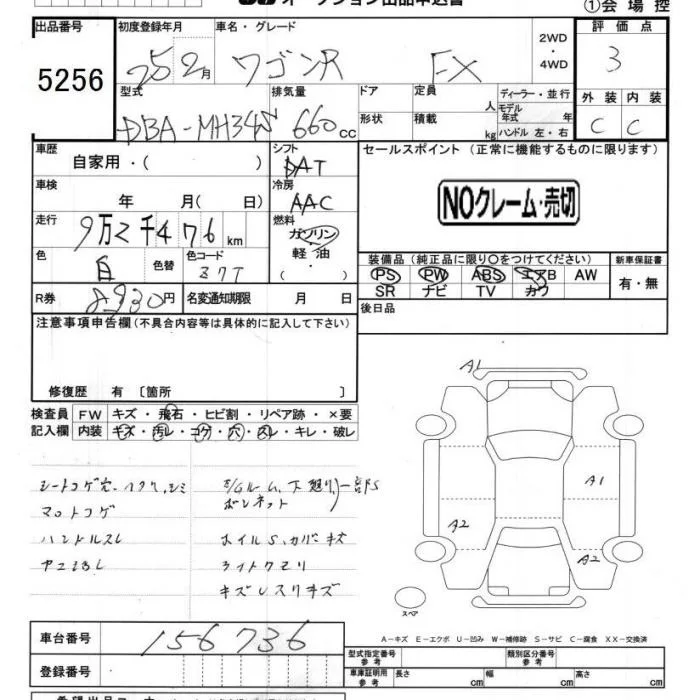 オークション出品申込書
①会場控
出品番号 初度登録年月 車名・グレード 評価点
5256 25 2月 ワゴンR FX 2WD・4WD 3
型式 排気量 ドア 定員 ディーラー・並行 外装 内装
DBA-MH34S 660cc 形状 積載 人 kg モデル年式 年 ハンドル 左・右 C C
車歴 自家用・( ) シフト AT セールスポイント (正常に機能するものに限ります)
車検 年 月( 日) 冷房 AAC
NOクレーム・売切
走行 9万2千476km 燃料 ガソリン 軽油・( )
色 白 色替 色コード Z7T 装備品(純正品に限り○をつけてください) 新車保証書
PS PW ABS エアB AW 有・無
SR ナビ TV カワ
R券 8930円 名変通知期限 月 日 後日品
注意事項申告欄(不具合内容等は具体的に記入して下さい)
修復歴 有〔箇所 〕
検査員 FW キズ・飛石・ヒビ割・リペア跡・×要
記入欄 内装 キズ・汚レ・コゲ・穴・スレ・キレ・破レ
シートコゲ穴
マットコゲ ボンネット
ハンドルスレ ホイルS、カバキズ
ライトクモリ
A1
A1
A2
A2
スペア
A-キズ E-エクボ U-凹み W-補修跡 S-サビ C-腐食 XX-交換済
車台番号 156736
型式指定番号 参考 類別区分番号 参考
登録番号 車庫証明用 参考 長さ cm 幅 cm 高さ cm